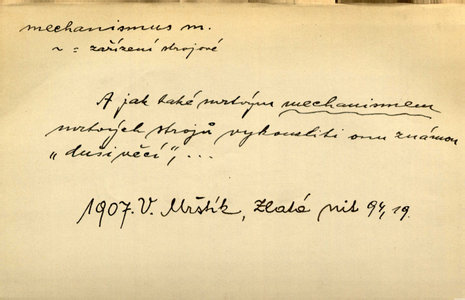 mechanismus m.
~ = zařízení strojové
A jak také mrtvým mechanismem
mrtvých strojů vykouzliti onu známou
„duši věcí”, ...
1907. V. Mrštík, Zlatá nit 94, 19.